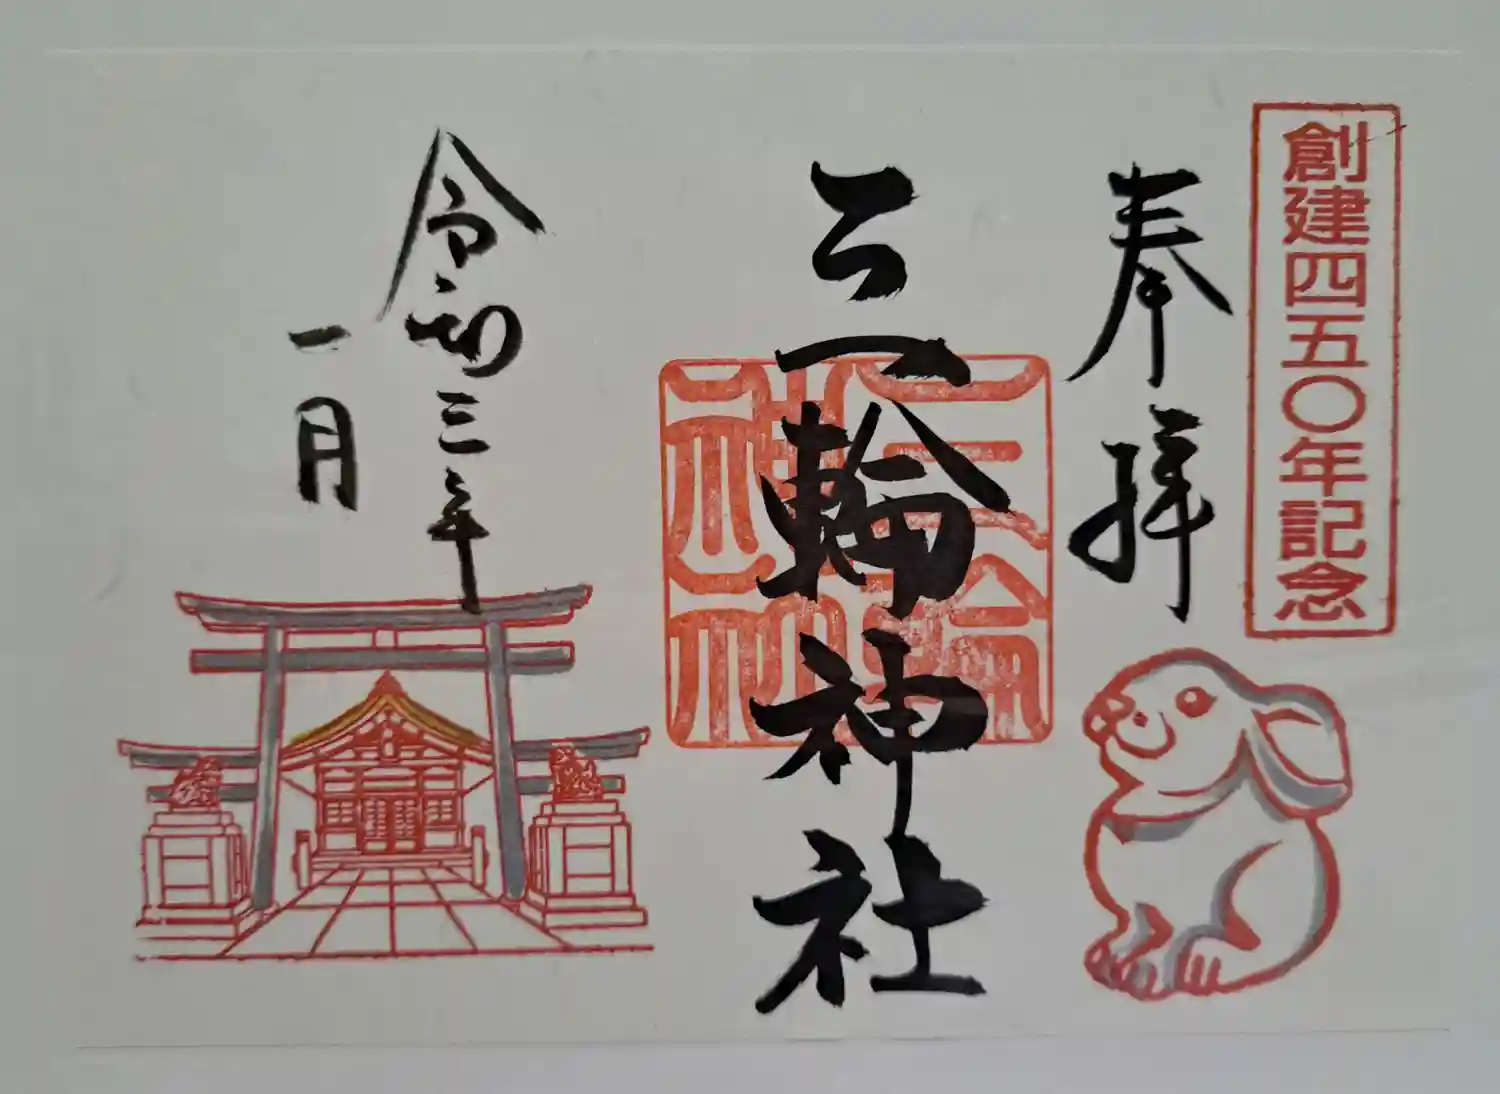 創建四五〇年記念
奉拝
三輪神社
三輪神社
令和三年
一月